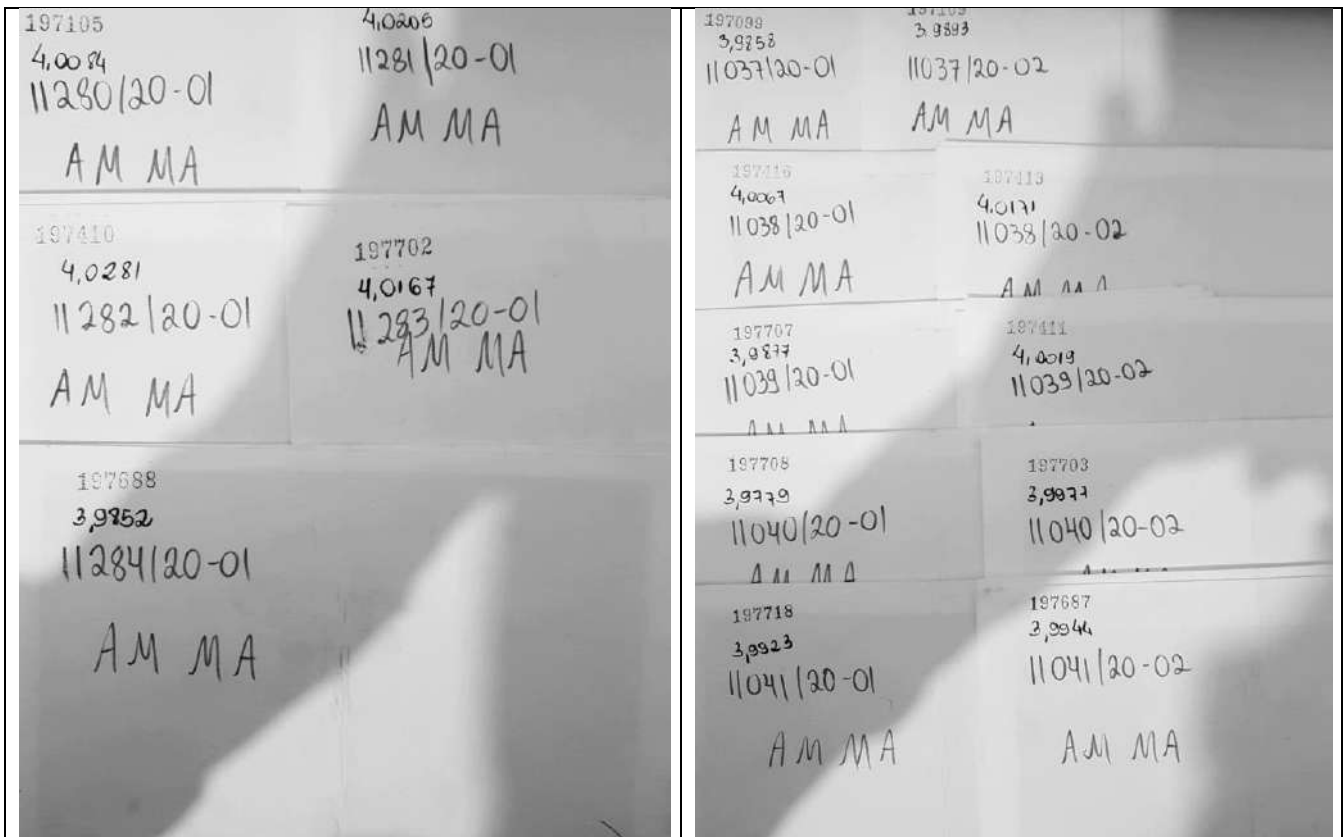 197105
4,0084
11280/20-01
AM MA
4,0206
11281/20-01
AM MA
197410
4,0281
11282/20-01
AM MA
197702
4,0167
11283/20-01
AM MA
197688
3,9852
11284/20-01
AM MA
197099
3,9858
11037/20-01
AM MA
3.9893
11037/20-02
AM MA
197416
4,0067
11038/20-01
AM MA
197413
4.0171
11038/20-02
AM MA
197707
3,9877
11039/20-01
AM MA
197411
4,0019
11039/20-02
197708
3,9779
11040/20-01
AM MA
197703
3,9977
11040/20-02
197718
3,9923
11041/20-01
AM MA
197687
3,9944
11041/20-02
AM MA